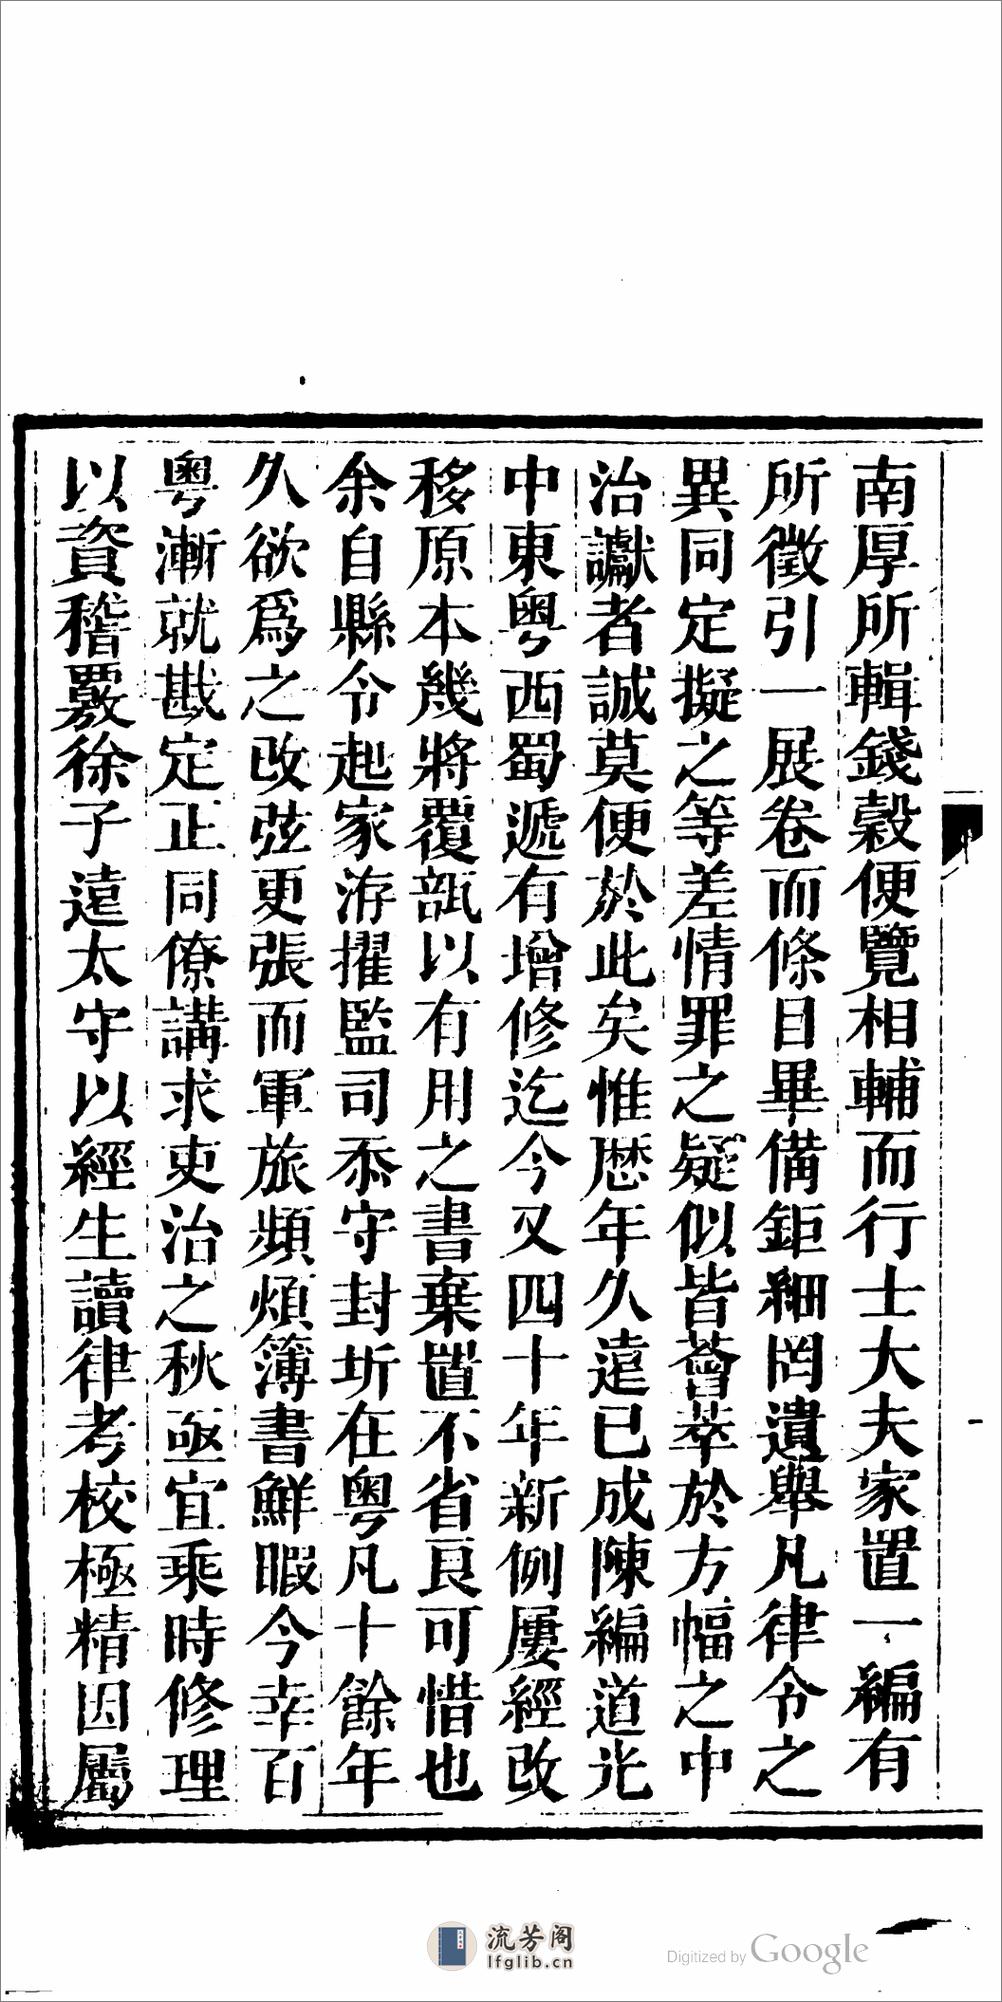 南厚所輯錢穀便覽相輔而行士大夫家置一編有
所徵引一展卷而條目畢備鉅細罔遺舉凡律令之
異同定擬之等差情罪之疑似皆薈萃於方幅之中
治讞者誠莫便於此矣惟歷年久遠已成陳編道光
中東粵西蜀遞有增修迄今又四十年新例屢經改
移原本幾將覆瓿以有用之書棄置不省良可惜也
余自縣令起家洊擢監司忝守封圻在粵凡十餘年
久欲爲之改弦更張而軍旅頻煩簿書鮮暇今幸百
粵漸就戡定正同僚講求吏治之秋亟宜乘時修理
以資稽覈徐子遠太守以經生讀律考校極精因屬
流芳阁
lfglib.cn
Digitized by Google